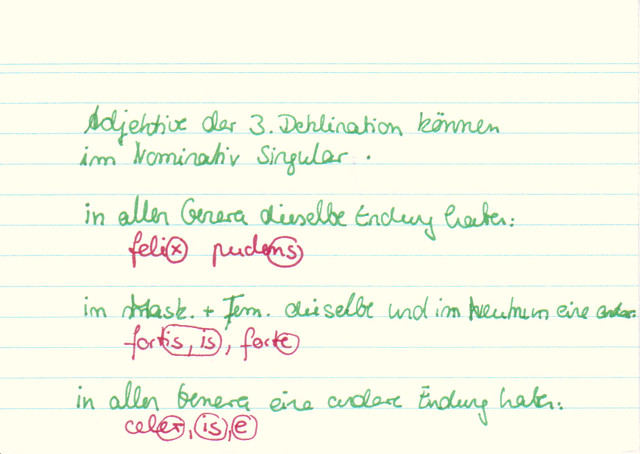 Adjektive der 3. Deklination können
im Nominativ Singular.
in allen Genera dieselbe Endung haben:
felix pudens
im Mask. + Fem. dieselbe und im Neutrum eine andere:
fortis, is, forte
in allen Genera eine andere Endung haben:
celer, is, e